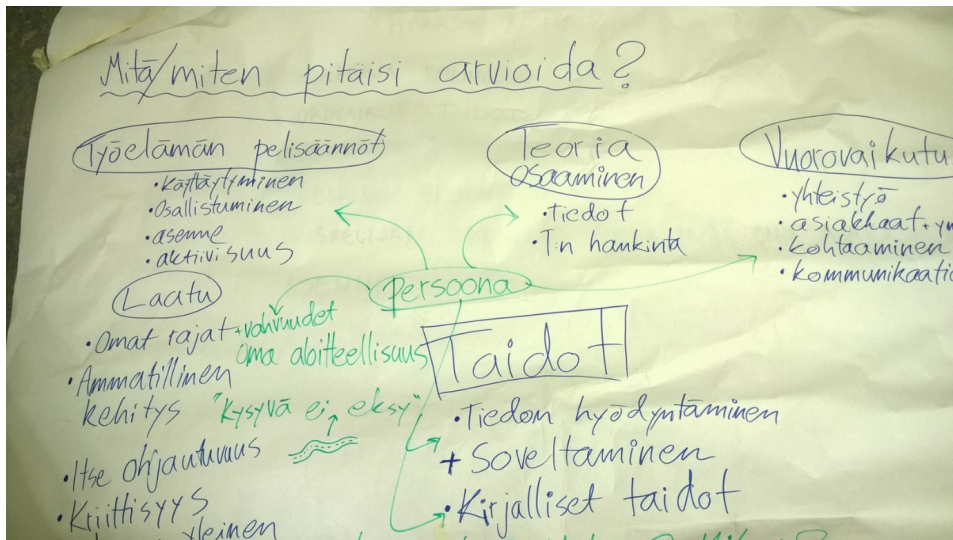 Mitä/miten pitäisi arvioida?
Työelämän pelisäännöt
• Käyttäytyminen
• Osallistuminen
• asenne
• aktiivisuus
Teoria
osaaminen
• Tiedot
• T:n hankinta
Vuorovaikutu
• yhteistyö
• asiakkaat + ym
• kohtaaminen
• kommunikaatio
persoona
Laatu
• Omat rajat + vahvuudet
Oma aloitteellisuus
• Ammatillinen
kehitys
"Kysyvä ei eksy"
• Itse ohjautuvuus
• Kriittisyys
yleinen
Taidot
• Tiedon hyödyntäminen
+ Soveltaminen
• Kirjalliset taidot